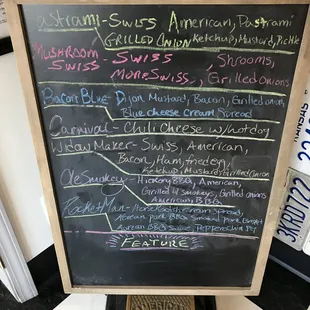 astrami - Swiss American, Pastrami
Grilled Onion Ketchup, Mustard, Pickle
Mushroom Swiss - Swiss, Shrooms,
More Swiss, Grilled Onions
Bacon Blue - Dijon Mustard, Bacon, Grilled onion,
Blue cheese Cream Spread
Carnival - Chili Cheese w/ hotdog
Widow Maker - Swiss, American,
Bacon, Ham, fried egg,
Ketchup, Mustard, Grilled Onion
Ole Smokey - Hickory BBQ, American,
Grilled Smokeys, Grilled onions
American, BBQ
Rocket Man - Cream Spread,
Korean BBQ
Korean BBQ Sauce, Pepper
FEATURE
KANSAS
3KRD